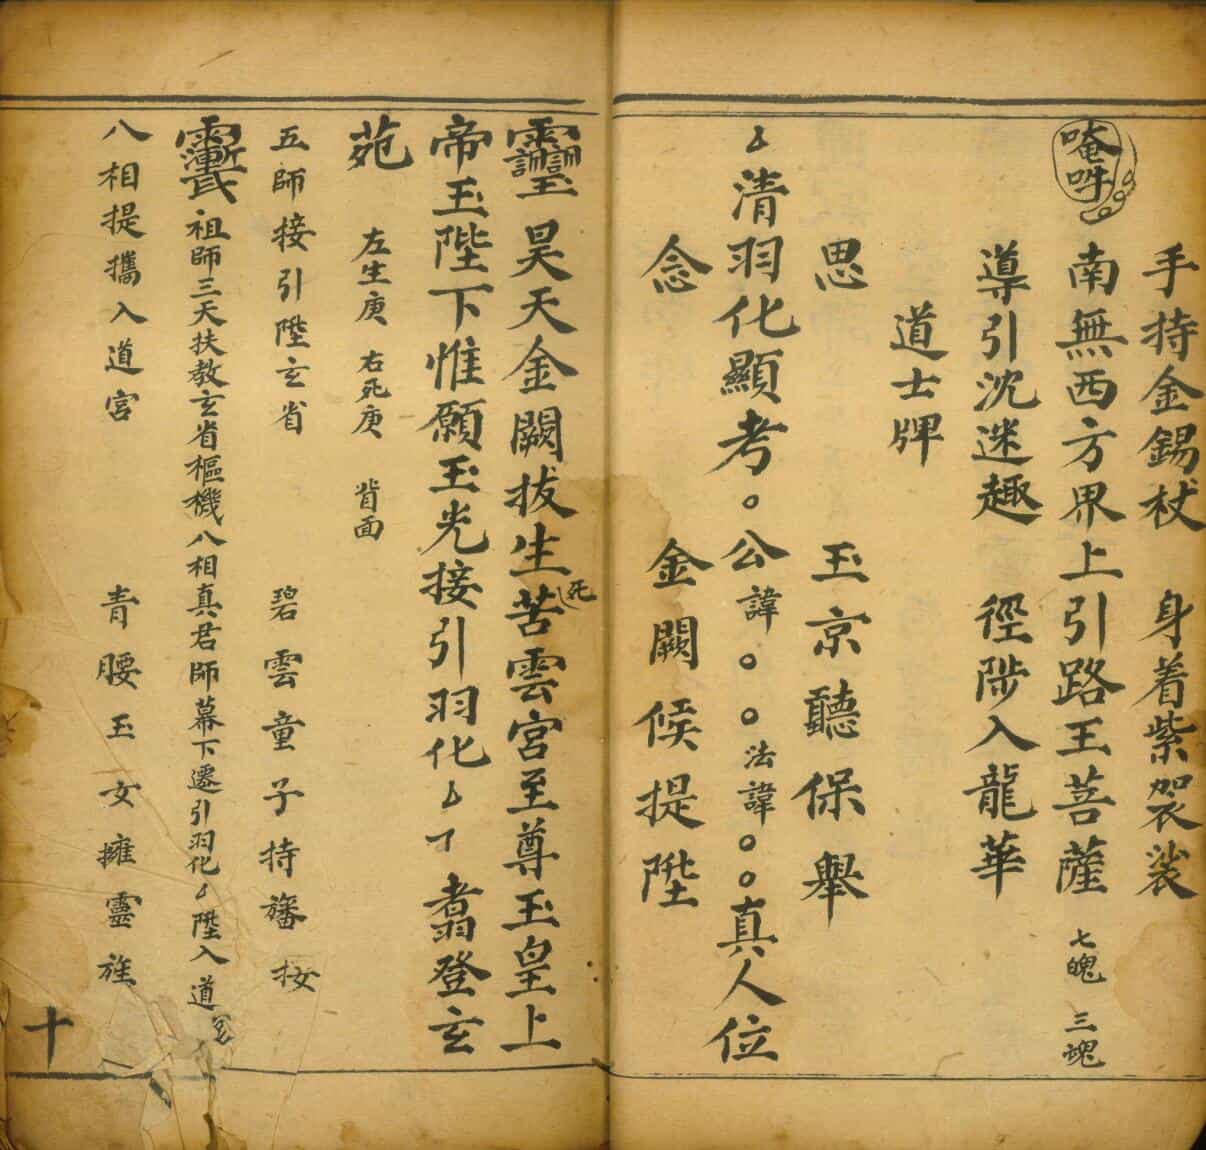 手持金錫杖　身着紫袈裟
唵吽　南無西方界上引路王菩薩　七魄　三魂
導引沈迷趣　徑陟入龍華
道士牌
思　玉京聽保舉
清羽化顯考。公諱。。法諱。。真人位
念　金闕候提陞
昊天金闕拔生死苦雲宮至尊玉皇上
帝玉陛下惟願玉光接引羽化 翥登玄
苑　左生庚　右死庚　背面
五師接引陞玄省　碧雲童子持旛按
祖師三天扶教玄省樞機八相真君師幕下遷引羽化 陞入道宮
八相提攜入道宮　青腰玉女擁靈旌
十